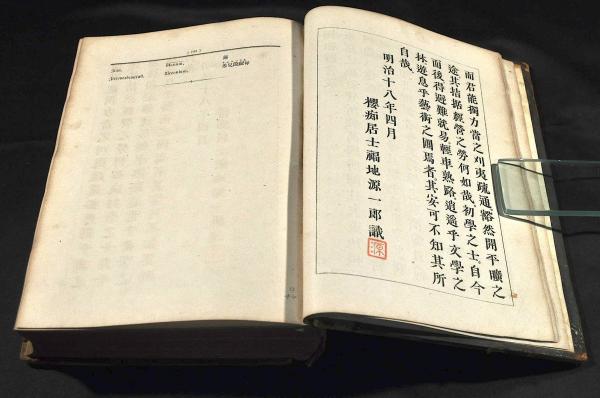 而君能獨力當之刈夷疏通豁然開平曠之
途其拮据經營之勞何如哉初學之士自今
而後得避難就易輕車熟路逍遙乎文學之
林遊息乎藝術之圃焉者其安可不知其所
自哉
明治十八年四月
櫻痴居士福地源一郎識